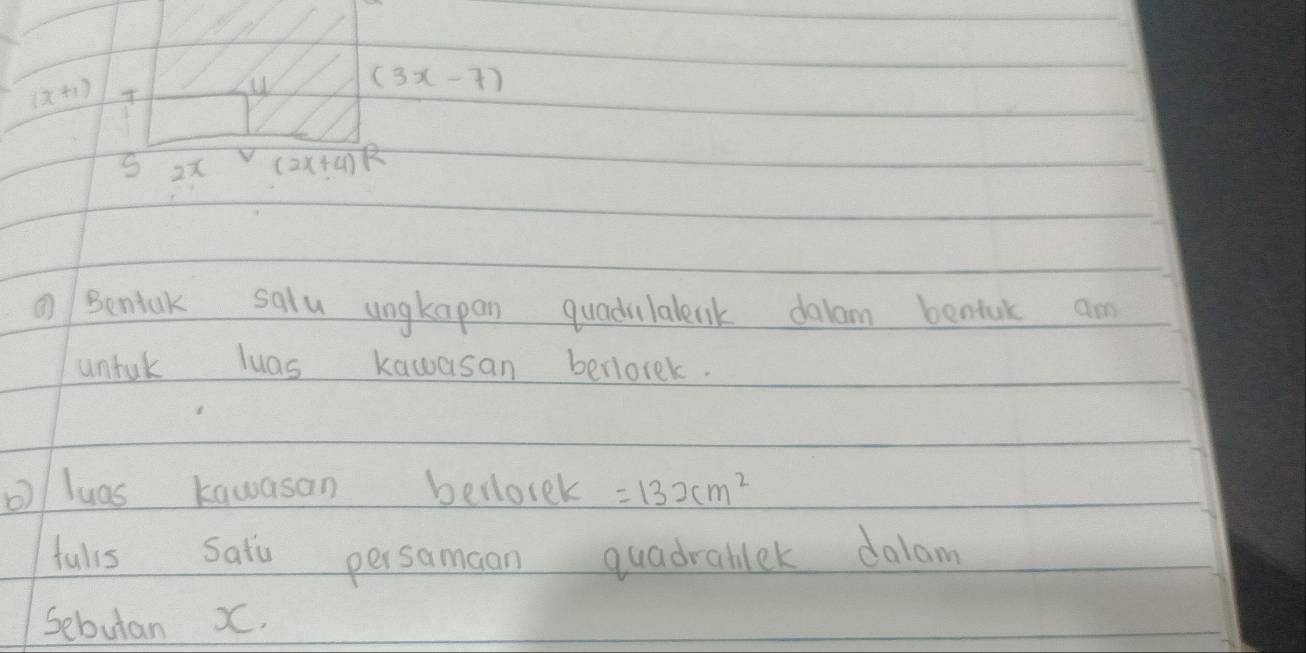 (x+1) T U (3x-7)
S 2x V (2x+4) R
a) Bentuk satu ungkapan quadrulaterik dalam bentuk am
untuk luas kawasan berlorek.
b) luas kawasan berlorek = 132cm²
tulis satu persamaan quadratilek dalam
Sebutan x.